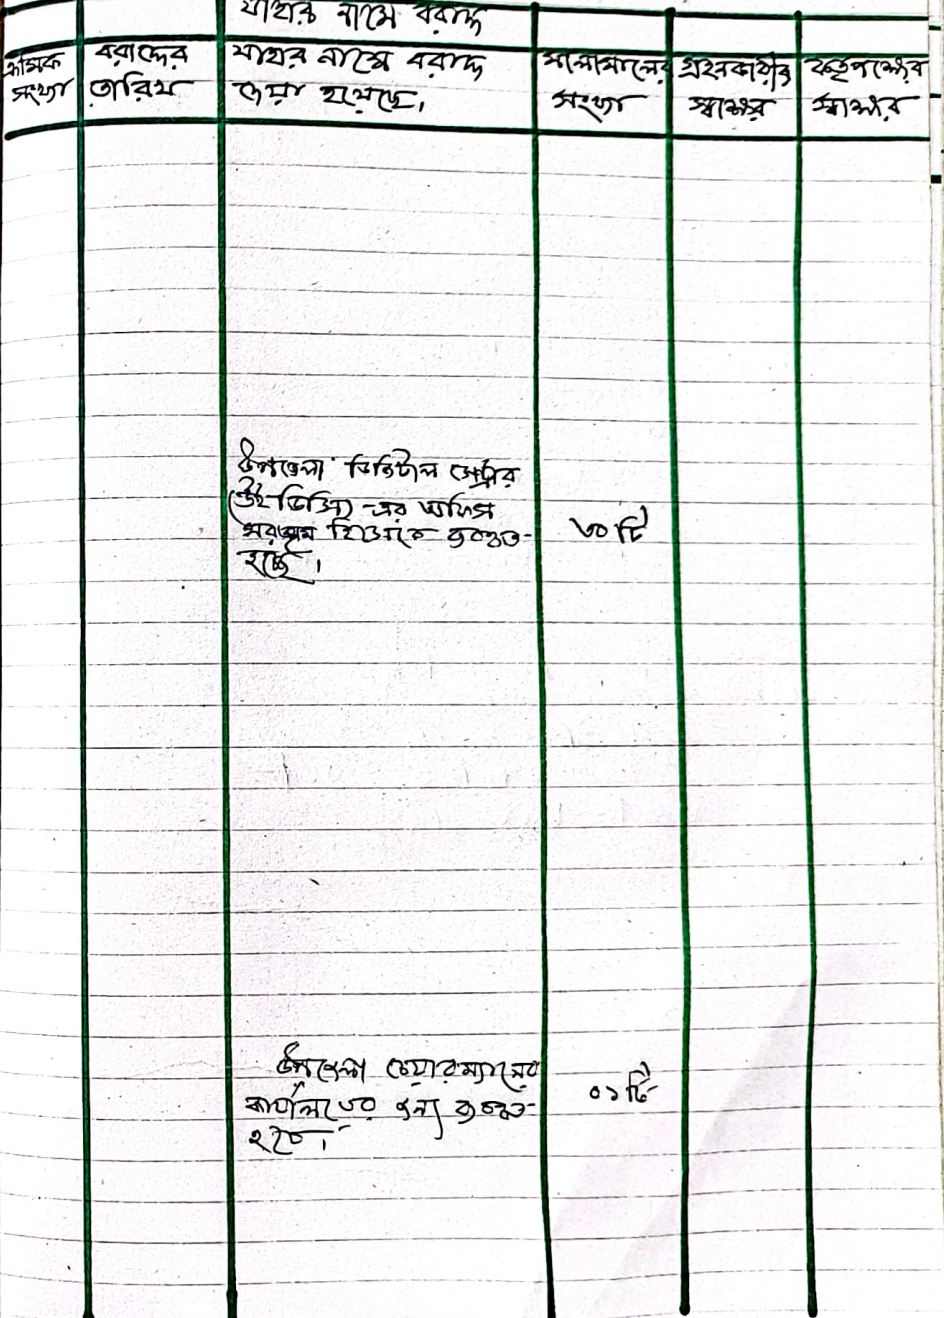 যাহার নামে বরাদ্দ
ক্রমিক সংখ্যা
বরাদ্দের তারিখ
যাহার নামে বরাদ্দ
দেয়া হয়েছে।
মালামালের সংখ্যা
গ্রহনকারীর স্বাক্ষর
কর্তৃপক্ষের স্বাক্ষর
উপজেলা ডিজিটাল সেন্টার
(ইউডিসি) -এর অফিস
সরঞ্জাম হিসাবে ব্যবহৃত- ৩০ টি
হচ্ছে।
উপজেলা চেয়ারম্যানের
কার্যালয়ের জন্য ব্যবহৃত- ০১ টি
হচ্ছে।